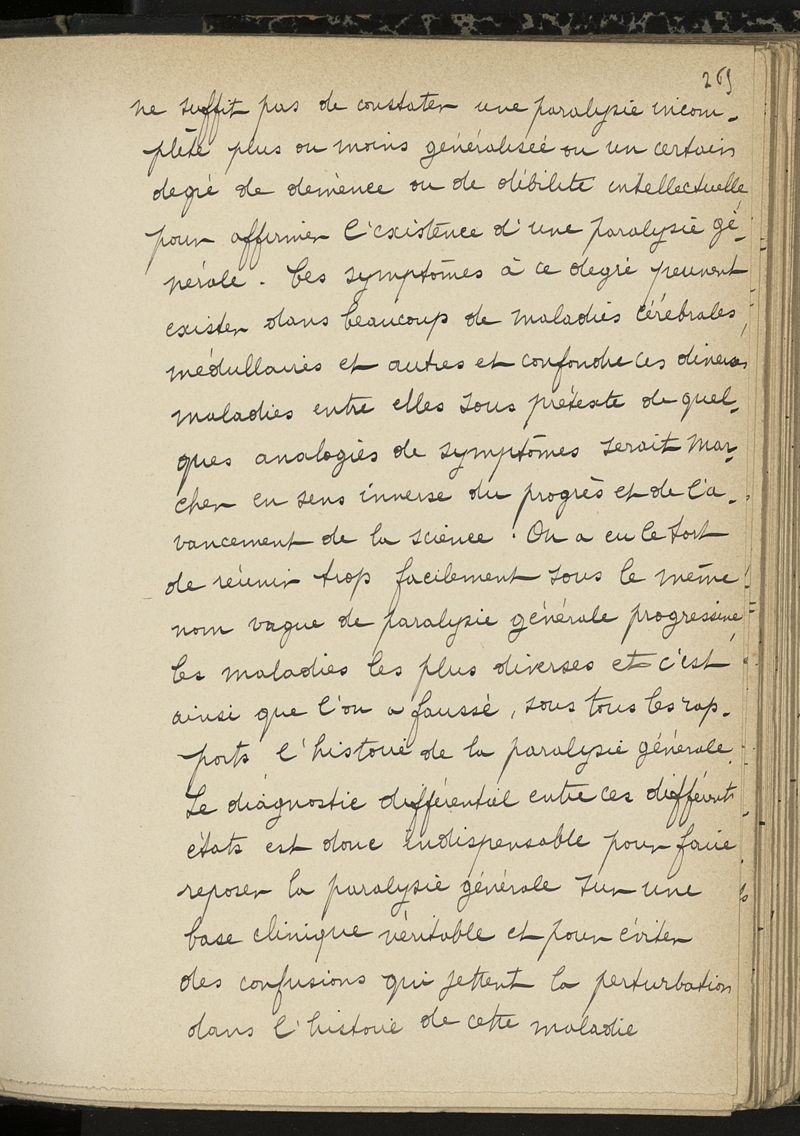 269
ne suffit pas de constater une paralysie incom-
plète plus ou moins généralisée ou un certain
degré de démence ou de débilité intellectuelle
pour affirmer l'existence d'une paralysie gé-
nérale. Ces symptômes à ce degré peuvent
exister dans beaucoup de maladies cérébrales,
médullaires et autres et confondre ces diverses
maladies entre elles sous prétexte de quel-
ques analogies de symptômes serait mar-
cher en sens inverse du progrès et de l'a-
vancement de la science. On a eu le tort
de réunir trop facilement sous le même
nom vague de paralysie générale progressive
les maladies les plus diverses et c'est
ainsi que l'on a faussé, sous tous les rap-
ports l'histoire de la paralysie générale.
Le diagnostic différentiel entre ces différents
états est donc indispensable pour faire
reposer la paralysie générale sur une
base clinique véritable et pour éviter
des confusions qui jettent la perturbation
dans l'histoire de cette maladie